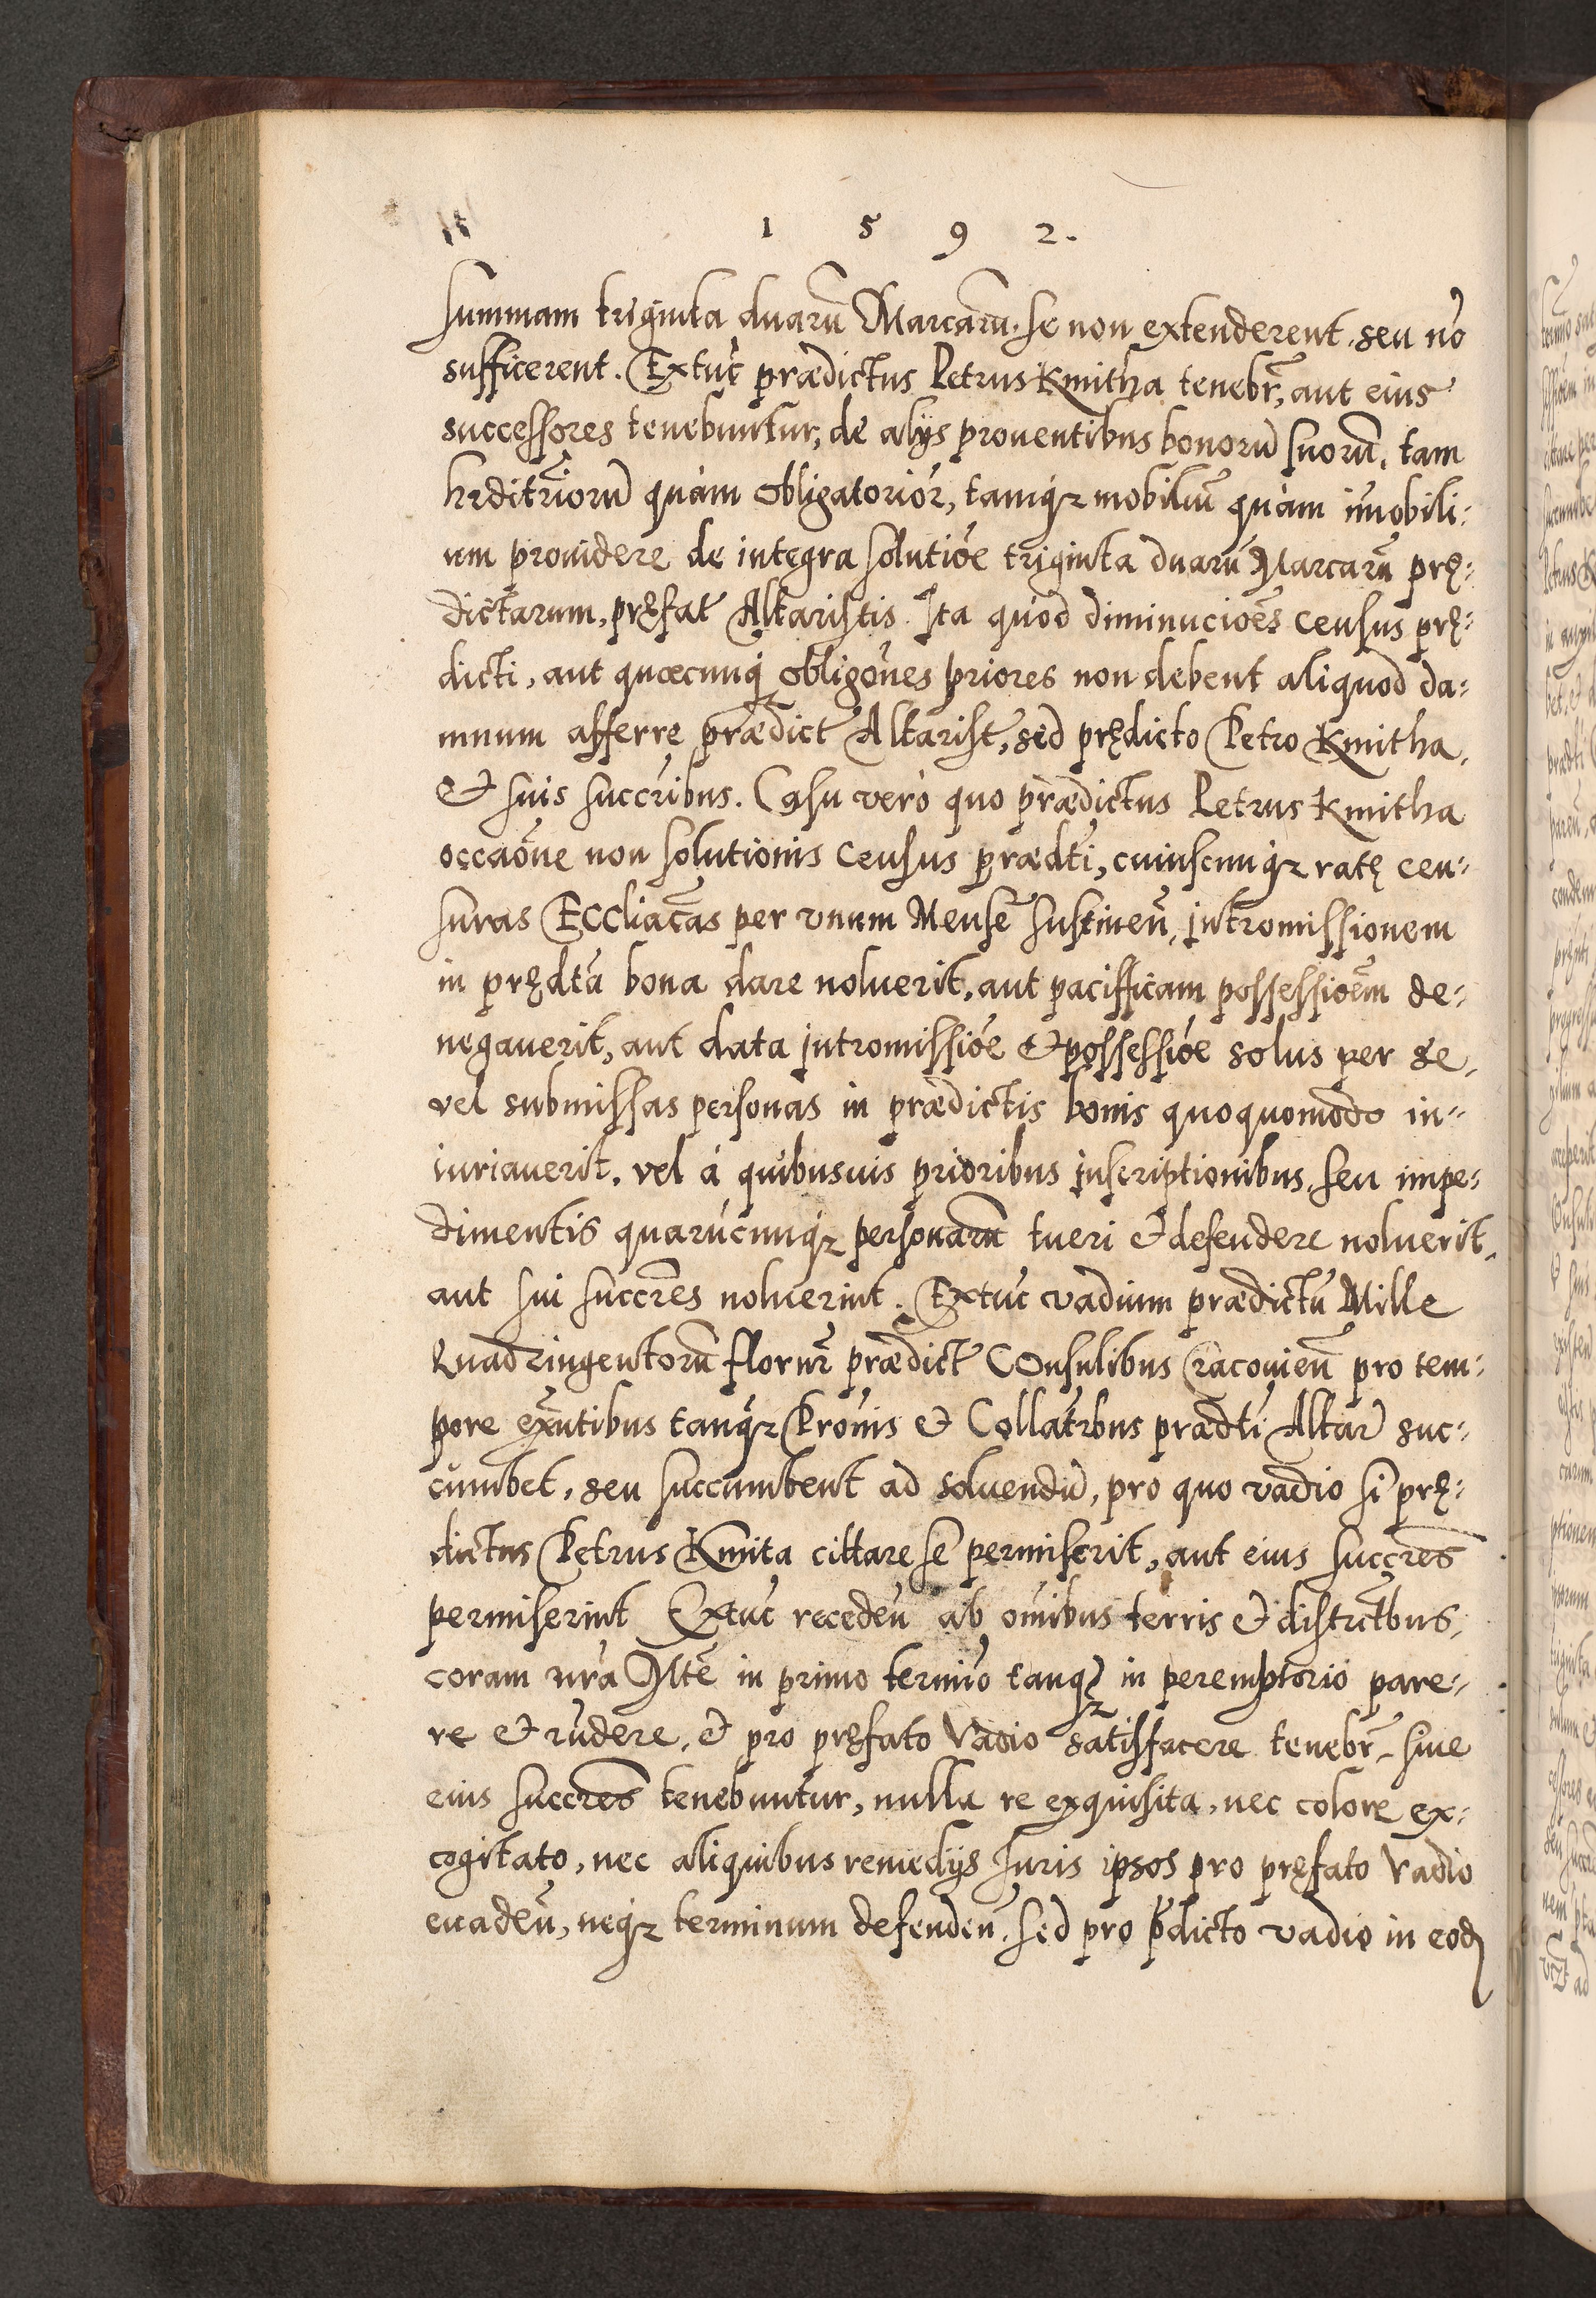 1 5 9 2.
summam triginta duarū Marcarū. se non extenderent. seu nō
sufficerent. Extūc prædictus Petrus Kmitha tenebr̄, aut eius
successores tenebuntur, de alijs prouentibus bonorū suorū, tam
hęditriorū quàm obligatorior̄, tamq̧ mobiliū quàm im̄obili:
um prouidere de integra solutiōe triginta duarū Marcarū prę:
dictarum, pręfat Altaristis. Ita quòd diminucioēs census prę:
dicti, aut quæcunq̧ obligōnes priores non debent aliquod da:
mnum afferre prædict Altarist, sed prędicto Petro Kmitha,
et suis succribus. Casu verò quo prædictus Petrus Kmitha
occaōne non solutionis census prædti, cuiuscunq̧ ratę cen:
suras Eccliacas per vnum Mensē sustineñ, intromissionem
in prędta bona dare noluerit, aut pacifficam possessioēm de:
negauerit, aut data intromissiōe et possessiōe solus per se,
vel submissas personas in prædictis bonis quoquomodo in:
iuriauerit. vel á quibusuis prioribus inscriptionibus, seu impe:
dimentis quarūcunq̧ personarū tueri et defendere noluerit,
aut sui succres noluerint. Extūc vadium prædictū Mille
Quadringentorū flornr̄ prædict Consulibus Cracouieñ pro tem:
pore exn̄tibus tanq̧ Prōnis et Collatrbus prædti Altar suc:
cumbet, seu succumbent ad soluendū, pro quo vadio si prę:
dictus Petrus Kmita cittare se permiserit, aut eius succres
permiserint Extūc recedeñ ab omībus terris et distrctbus,
coram nr̄a Mtē in primo termīo tanq̧ in peremptorio pare:
re et rn̄dere, et pro pręfato Vadio satisfacere tenebr̄, siue
eius succres tenebuntur, nulla re exquisita, nec colore ex:
cogitato, nec aliquibus remedijs Iuris ipsos pro pręfato Vadio
euadeñ, neq̧ terminum defendeñ, sed pro p̄dicto vadio in eod